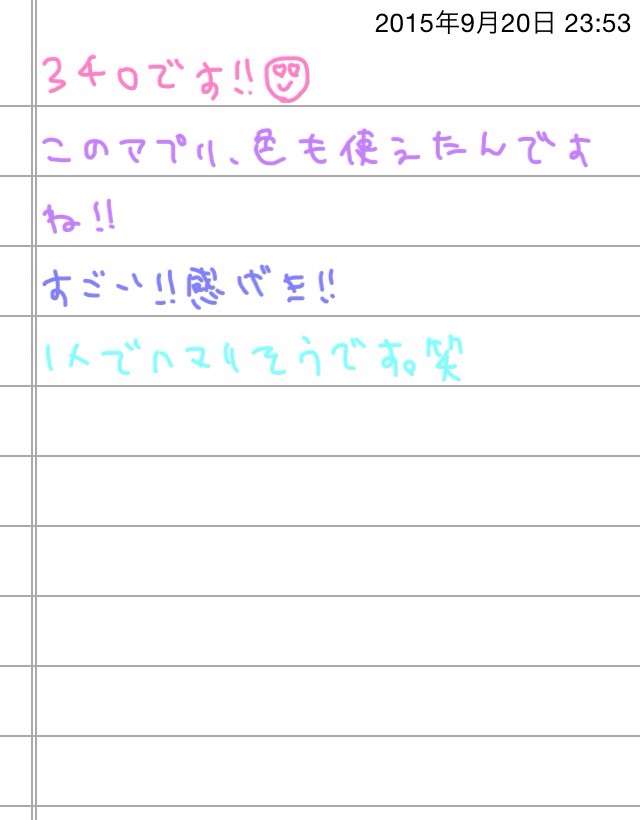 2015年9月20日 23:53
ろチロです!!
このアプリ、色も使えたんです
ね!!
すごい!!感げき!!
1人でハマりそうです。笑